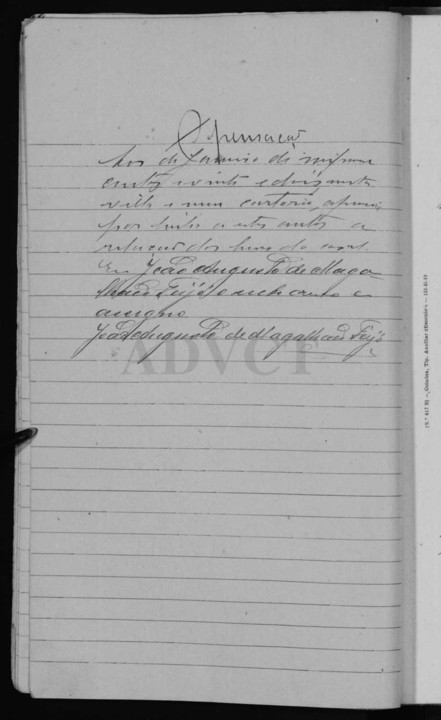 Apensação
Aos de Janeiro de mil nove
centos e vinte e dois, nesta
villa e meu cartorio, apensei
por linha a estes autos a
relação dos bens do casal
Eu João Augusto de Maga
lhães Feijó, o subscrevo e
assigno
João Augusto de Magalhães Feijó
ADVCT
(N.º 617 B) — Coimbra, Tip. Auxiliar d'Escritorio